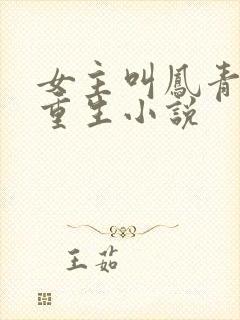 女主叫鳳青
重生小說
王茹